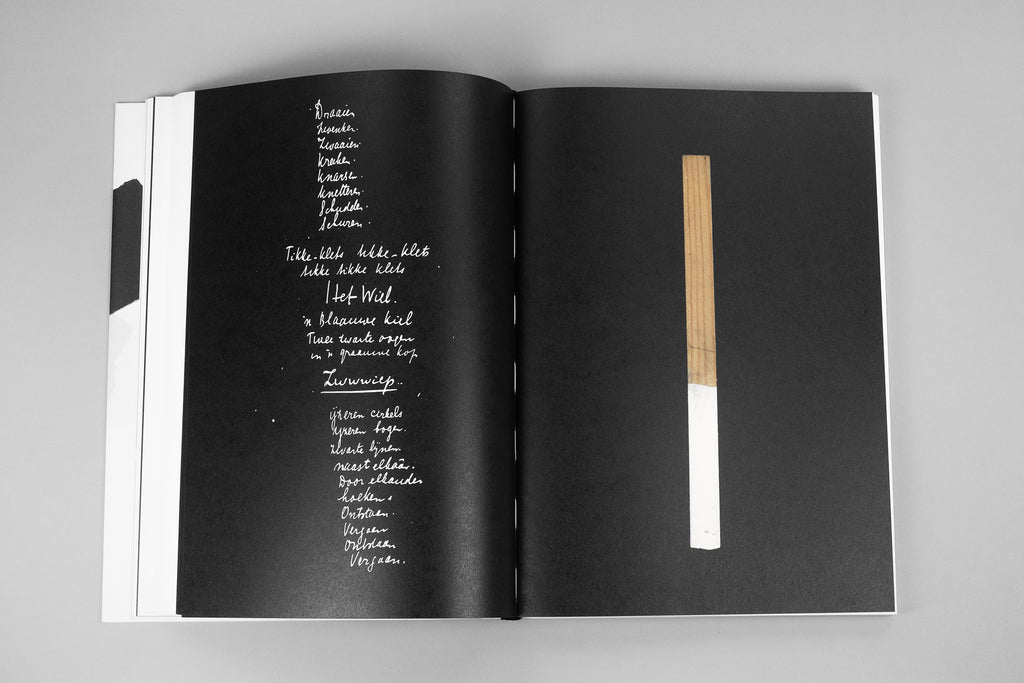 Draaien
Zwenken.
Zwaaien.
Kraken.
Knarsen.
Knetteren.
Schudden.
Schuren.
Tikke-klets tikke-klets
tikke tikke klets
Het Wiel.
'n Blaauwe kiel
Twee zwarte oogen
in 'n graauwe kop
Zwwwiep..
ijzeren cirkels
ijzeren bogen.
zwarte lijnen
naast elkaâr.
Door elkander
hoeken.
Ontstaan.
Vergaan
Ontstaan
Vergaan.